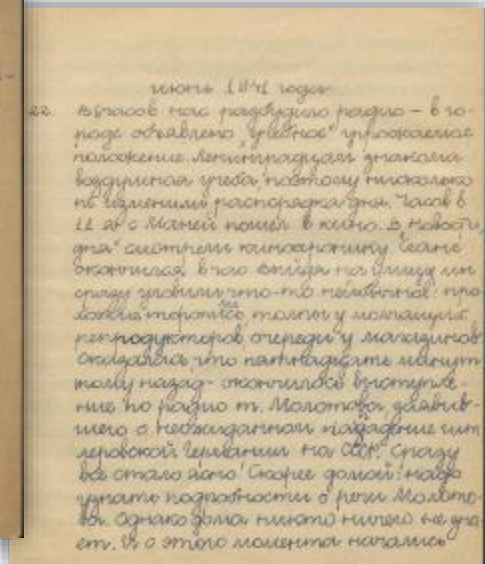 июнь 1941 года
22. В 6 часов нас разбудило радио – в го-
роде объявлено "учебное" угрожаемое
положение. Ленинградцам знакома
воздушная учеба, поэтому нисколько
не изменили распорядка дня. Часов в
11 я с Маней пошел в кино. В "Новости
дня" смотрели кинохронику. Сеанс
окончился в час. Выйдя на улицу мы
сразу уловили что-то необычное: про-
хожие торопились, толпы у молчащих
репродукторов, очереди у магазинов.
Оказалось, что пятнадцать минут
тому назад окончилось выступле-
ние по радио т. Молотова, заявив-
шего о неожиданном нападение гит-
леровской Германии на СССР. Сразу
все стало ясно! Скорее домой: надо
узнать подробности о речи Молото-
ва. Однако дома никто ничего не зна-
ет. И с этого момента начались